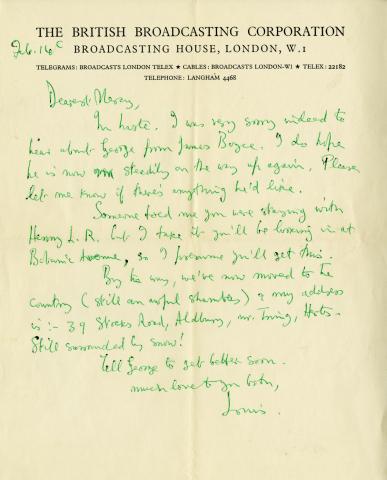 THE BRITISH BROADCASTING CORPORATION
BROADCASTING HOUSE, LONDON, W.1
TELEGRAMS: BROADCASTS LONDON TELEX ★ CABLES: BROADCASTS LONDON-W1 ★ TELEX: 22182
TELEPHONE: LANGHAM 4468
Feb. 14
Dearest Mercy,
In haste. I was very sorry indeed to
hear about George from James Boyce. I do hope
he is now steadily on the way up again. Please
let me know if there's anything he'd like.
Someone told me you were staying with
Henry L. R. but I take it you'll be looking in at
Botanic Avenue, so I presume you'll get this.
By the way, we've now moved to the
country (still an awful shambles) & my address
is :- 39 Stocks Road, Aldbury, nr. Tring, Herts.
Still surrounded by snow!
Tell George to get better soon.
much love to you both,
Louis.